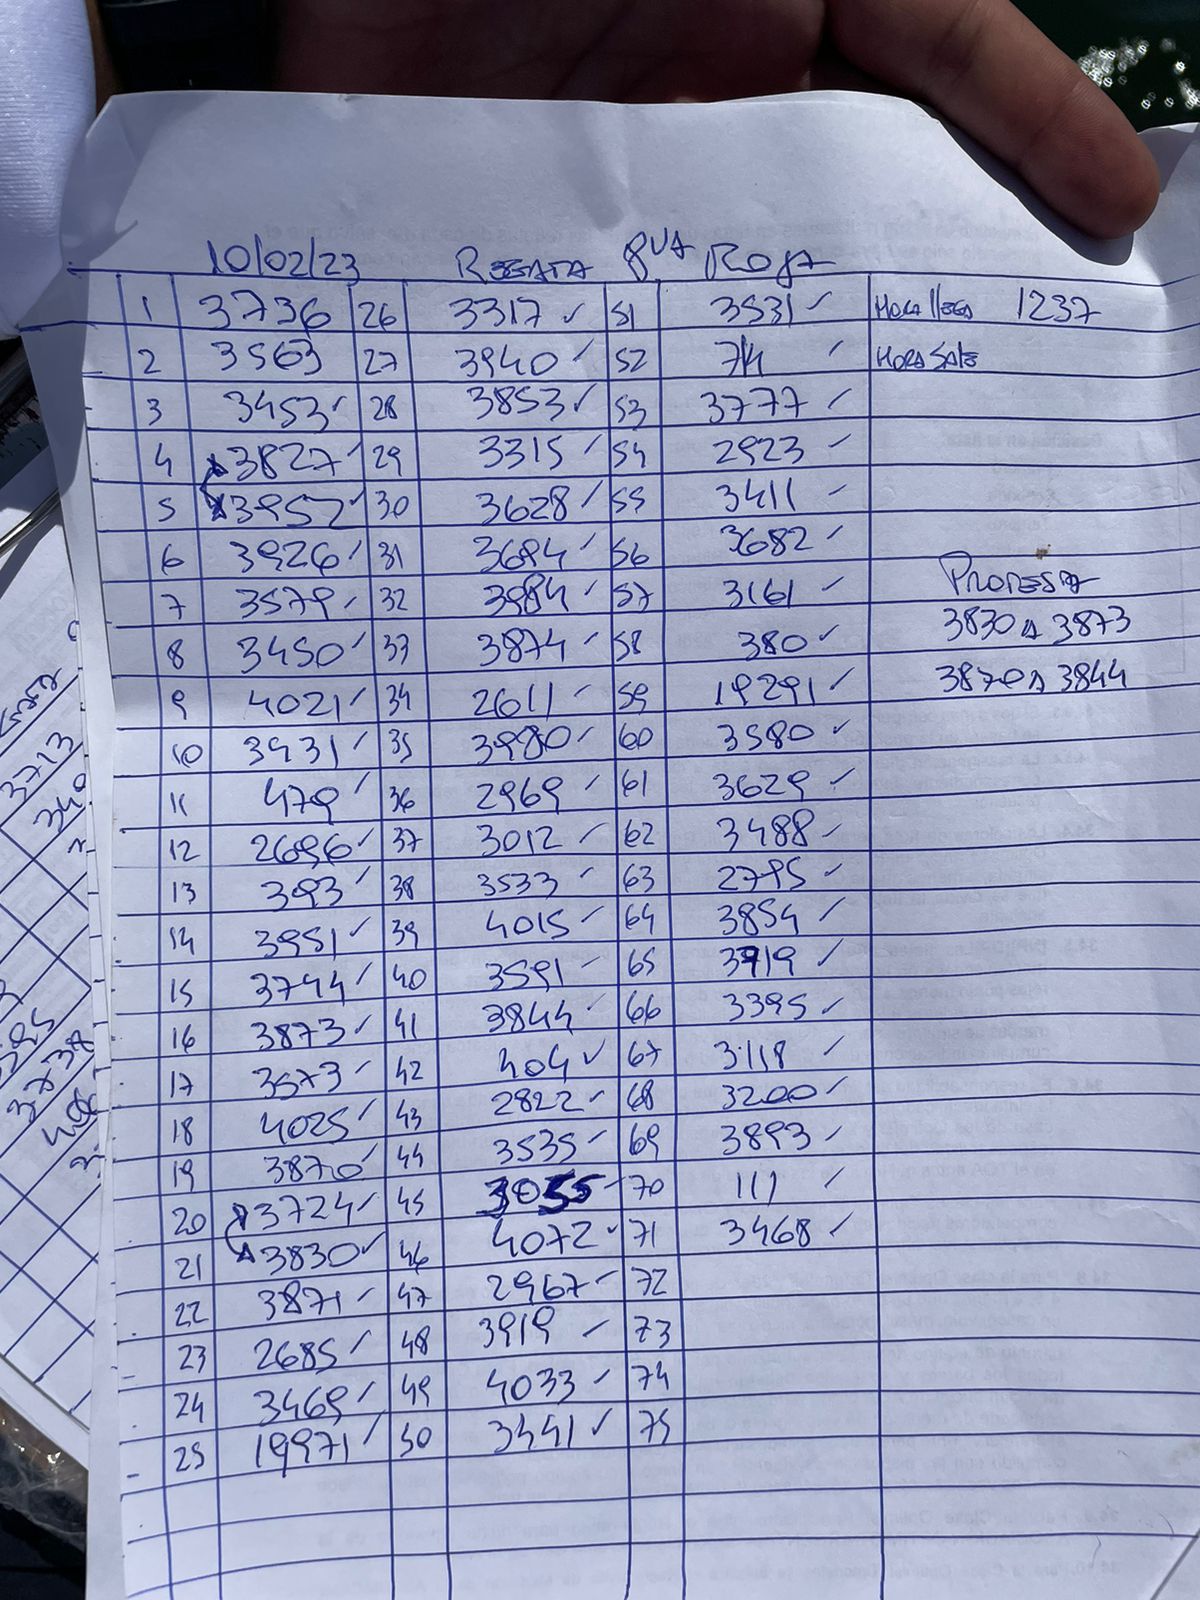 10/02/23 REGATA 8VA ROJA
1 3736 26 3317 ✓ 51 3531 ✓ HORA llega 1237
2 3563 27 3940 ✓ 52 714 ✓ HORA SALE
3 3453 ✓ 28 3853 ✓ 53 3777 ✓
4 3827 ✓ 29 3315 ✓ 54 2923 ✓
5 3957 ✓ 30 3628 ✓ 55 3411 ✓
6 3926 ✓ 31 3694 ✓ 56 3682 ✓
PROTESTA
7 3579 ✓ 32 3984 ✓ 57 3161 ✓
3830 A 3873
8 3450 ✓ 33 3874 ✓ 58 380 ✓
3870 A 3844
9 4021 ✓ 34 2611 ✓ 59 19291 ✓
10 3931 ✓ 35 3980 ✓ 60 3580 ✓
11 479 ✓ 36 2969 ✓ 61 3629 ✓
12 2696 ✓ 37 3012 ✓ 62 3488 ✓
13 393 ✓ 38 3533 ✓ 63 2795 ✓
14 3951 ✓ 39 4015 ✓ 64 3854 ✓
15 3744 ✓ 40 3591 ✓ 65 3719 ✓
16 3873 ✓ 41 3844 ✓ 66 3395 ✓
17 3573 ✓ 42 404 ✓ 67 3118 ✓
18 4025 ✓ 43 2822 ✓ 68 3200 ✓
19 3870 ✓ 44 3535 ✓ 69 3893 ✓
20 3724 ✓ 45 3055 ✓ 70 111 ✓
21 3830 ✓ 46 4072 ✓ 71 3468 ✓
22 3871 ✓ 47 2967 ✓ 72
23 2685 ✓ 48 3919 ✓ 73
24 3469 ✓ 49 4033 ✓ 74
25 19971 ✓ 50 3441 ✓ 75
3713
3738